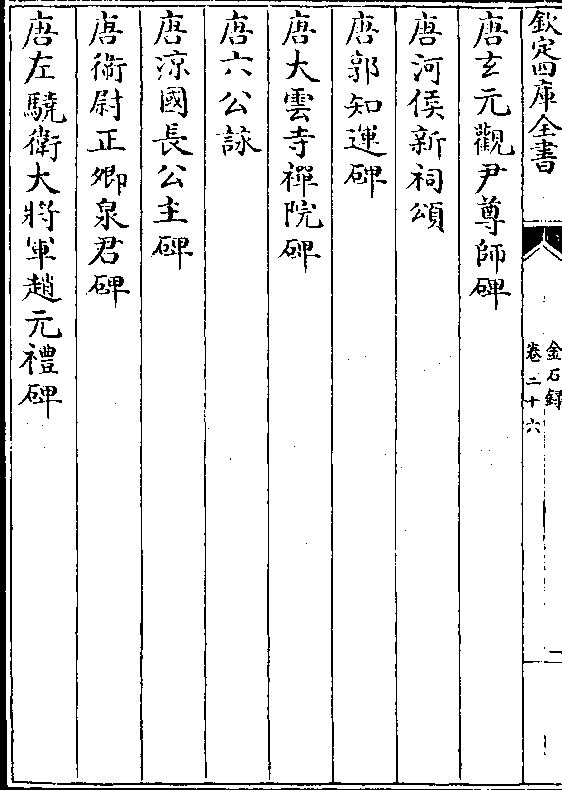 欽定四庫全書
金石録
卷二十六
唐玄元觀尹尊師碑
唐河侯新祠頌
唐郭知運碑
唐大雲寺禪院碑
唐六公詠
唐涼國長公主碑
唐衛尉正卿泉君碑
唐左驍衛大將軍趙元禮碑